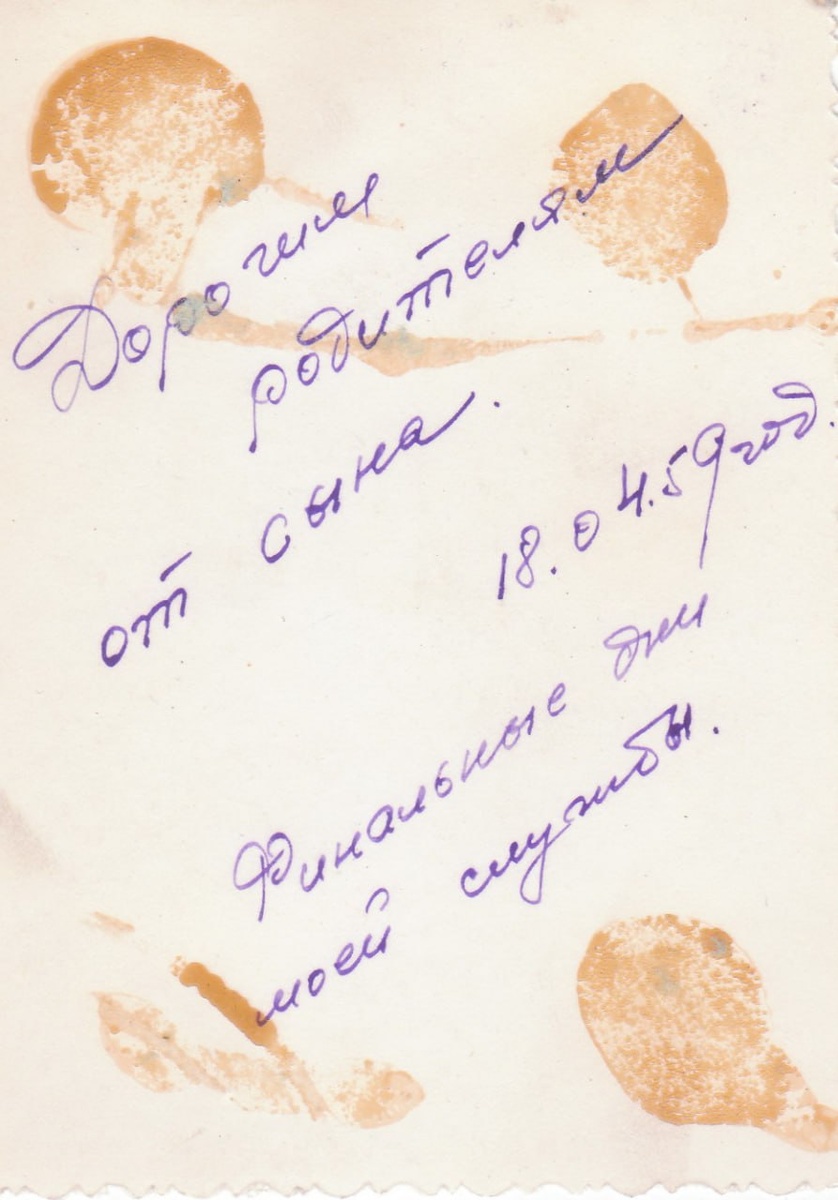 Дорогим
родителям
от сына.
18.04.59 год.
Финальные дни
моей службы.